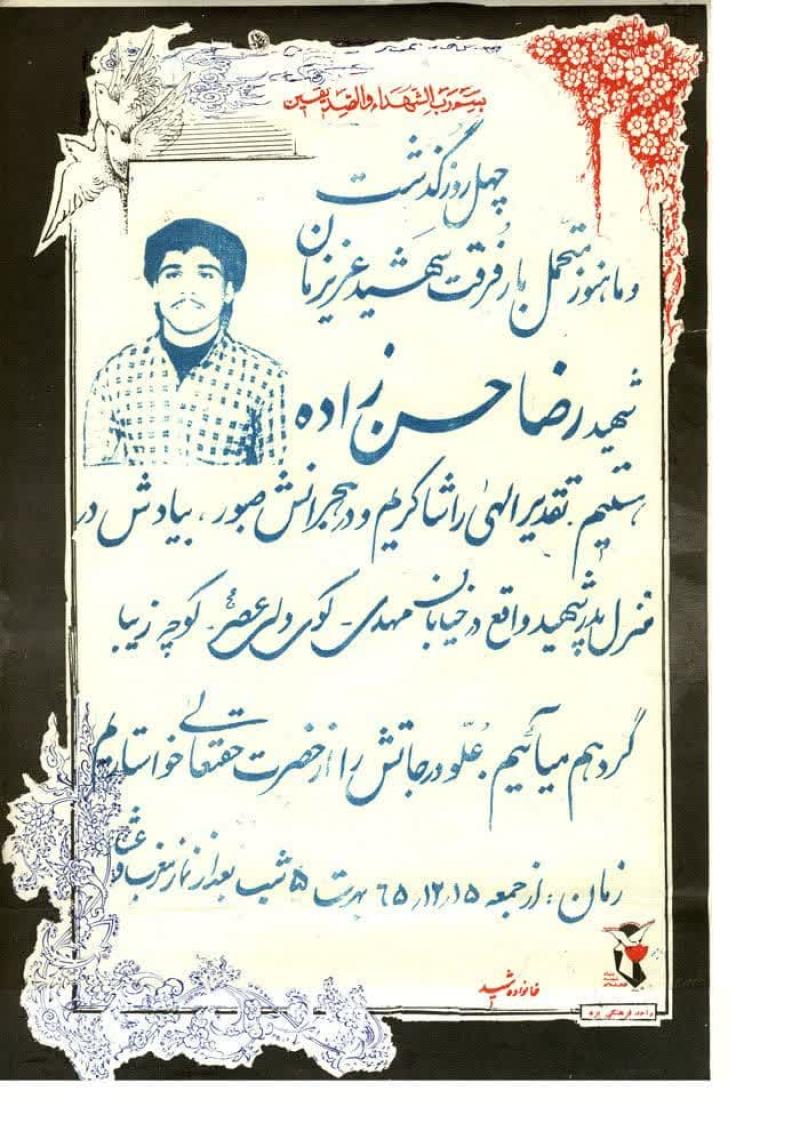 بسم رب الشهداء والصدیقین
چهل روز گذشت
و ما هنوز متحمل بار فُرقت شهید عزیزمان
شهید رضا حسن زاده
هستیم. تقدیر الهی را شاکریم و در هجرانش صبور، بیادش در
منزل پدر شهید واقع در خیابان مهدی - کوی ولی عصر - کوچه زیبا
گرد هم میآئیم. عُلّو درجاتش را از حضرت حقتعالی خواستاریم
زمان: از جمعه ۶۵/۱۲/۱۵ بمدت ۵ شب بعد از نماز مغرب و عشاء
خانواده شهید
واحد فرهنگی یزد